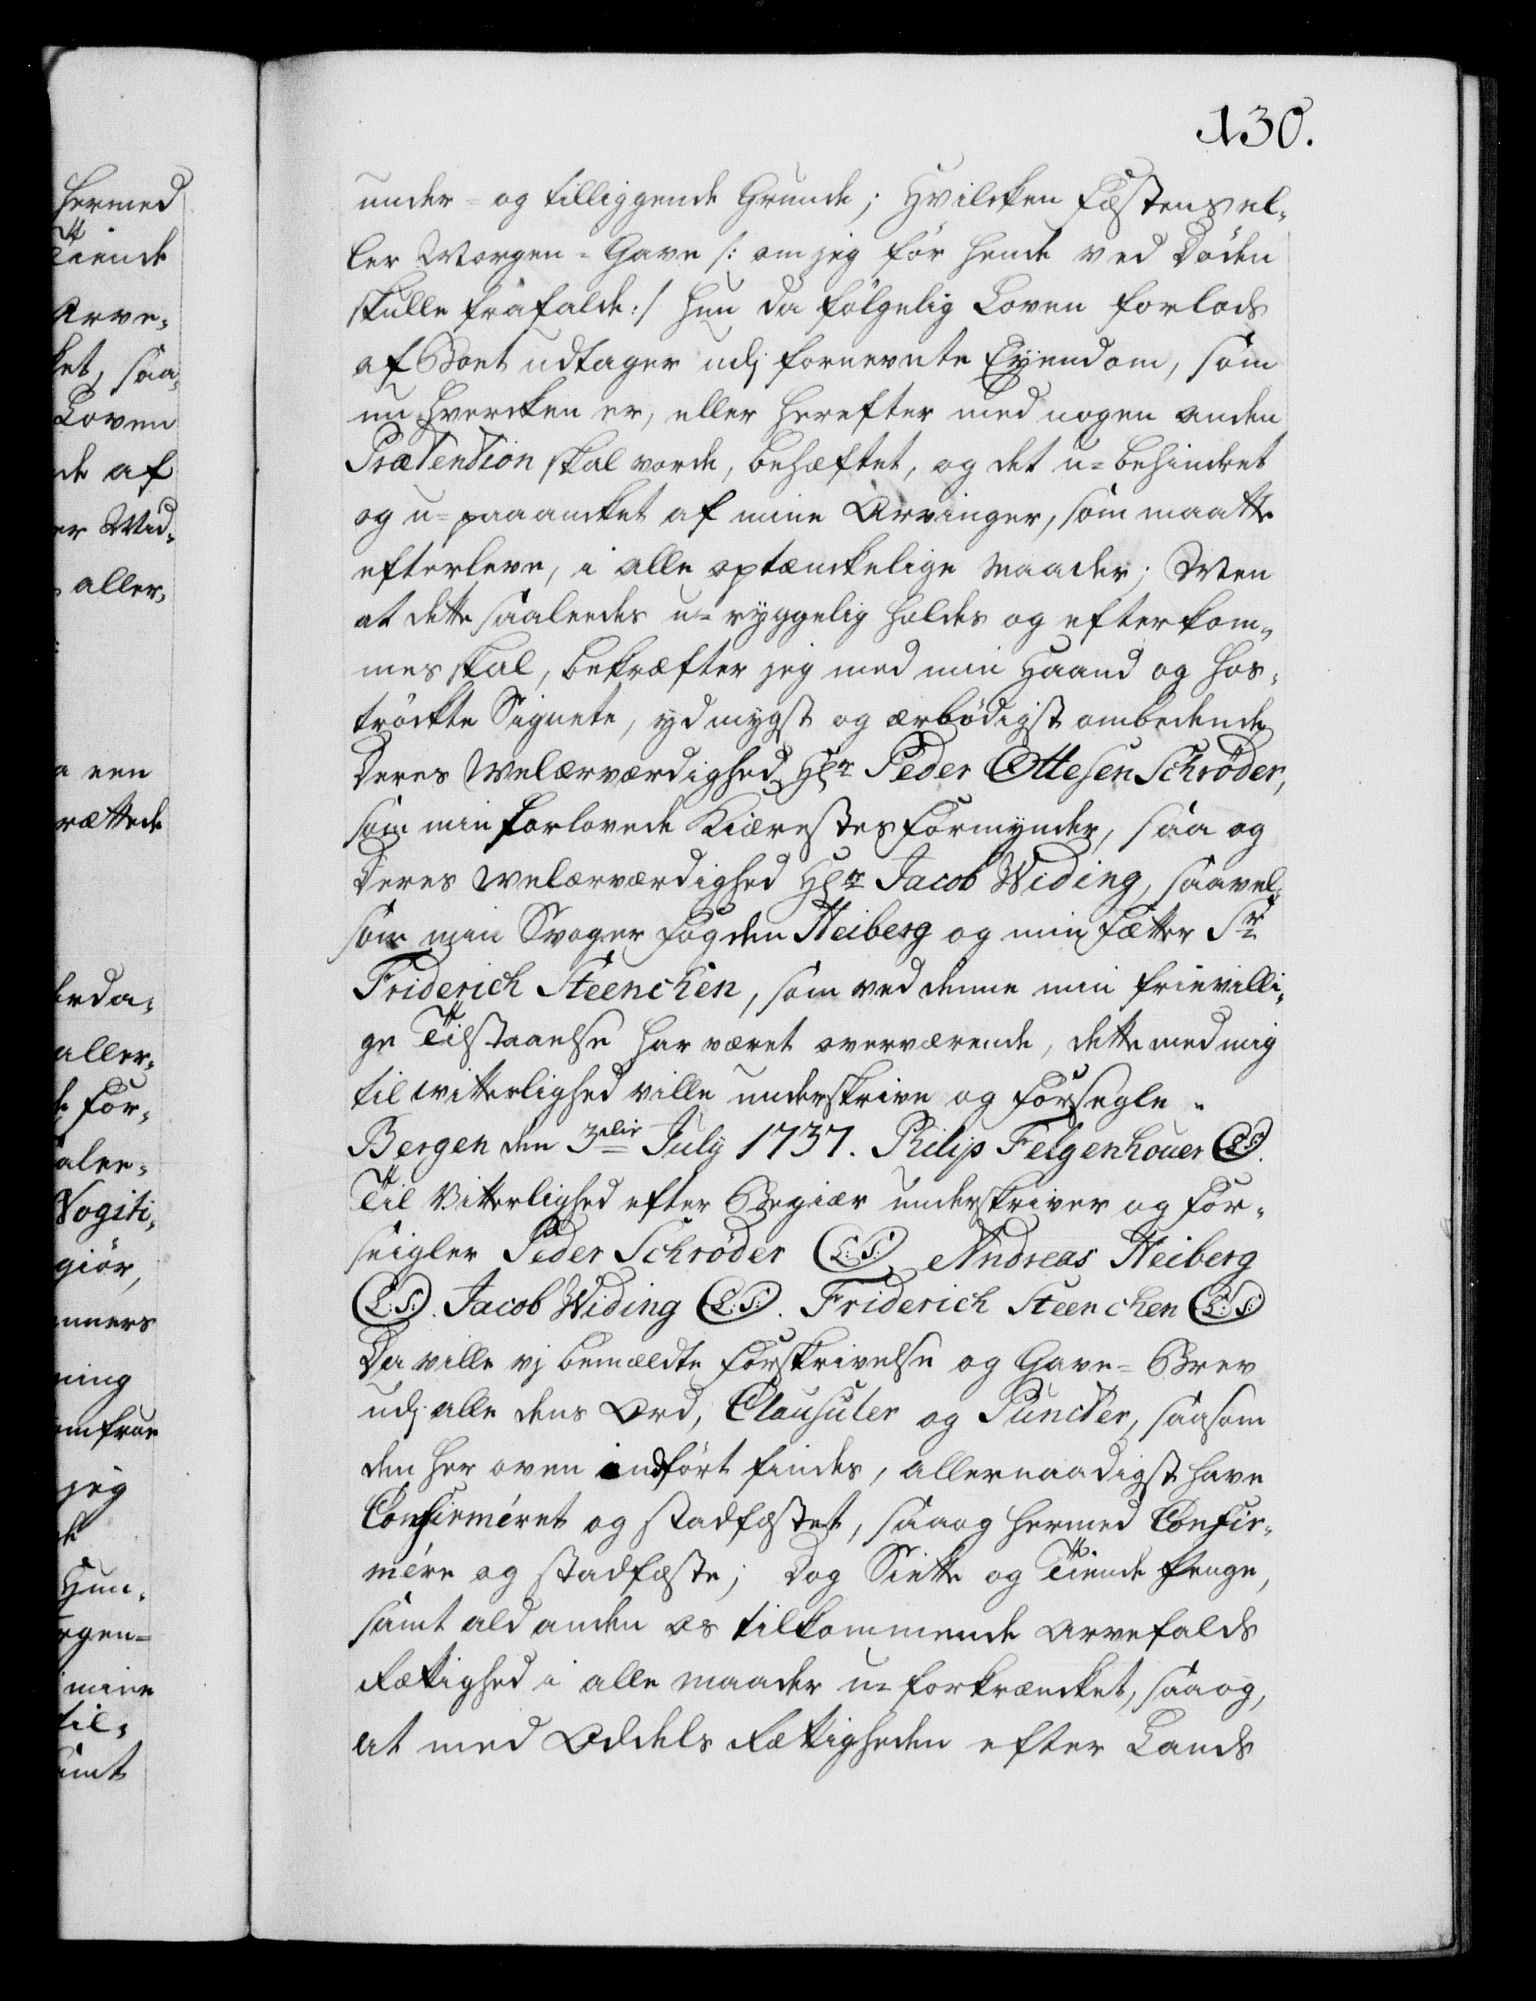 130.
hermed
Tiende
Arve-
ket, saa-
Loven
de af
er Mid-
aller-
a een
rettede
erda-
aller-
de for-
alee-
Vogiti-
giör,
nners
ning
omfrue
jeg
Hun-
rgen-
mine
til-
samt
under- og tilliggende Grunde; Hvilcken Fæstens el-
ler Morgen-Gave /: om jeg för hende ved Döden
skulle frafalde :/ hun da fölgelig Loven forlods
af Boet udtager udj fornevnte Eyendom, som
nu hvercken er, eller herefter med nogen anden
Prætention skal vorde, behæftet, og det u-behindret
og u-paaancket af mine Arvinger, som maatte
efterleve, i alle optænckelige Maader; Men
at dette saaleedes u-ryggelig holdes og efterkom-
mes skal, bekræfter jeg med min Haand og hos-
tröckte Signete, ydmygst og ærbödigst ombedende
Deres Velærværdighed Hr Peder Ottesen Schrøder,
som min forlovede Kiærestes Formynder, saa og
Deres Velærværdighed Hr Jacob Widing, saavel-
som min Svoger Fogden Heiberg og min Fætter Sr
Friderich Steenchen, som ved denne min frievilli-
ge Tilstaaelse har været overværende, dette med mig
til vitterlighed ville underskrive og forsegle.
Bergen den 3die July 1737. Philip Felgenhouer (L.S.).
Til Vitterlighed efter Begiær underskriver og for-
seigler Peder Schrøder (L.S.) Andreas Heiberg
(L.S.). Jacob Widing (L.S.). Friderich Steenchen (L.S.)
Da ville vj bemældte Forskrivelse og Gave-Brev
udj alle dens Ord, Clausuler og Puncter, saasom
den her oven indfört findes, allernaadigst have
Confirmeret og stadfæstet, saa og hermed Confir-
mere og stadfæste; Dog Siette og Tiende Penge,
samt ald anden os tilkommende Arvefalds
Rettighed i alle maader u-forkrencket, saa og,
at med Oddels Rettigheden efter Lands